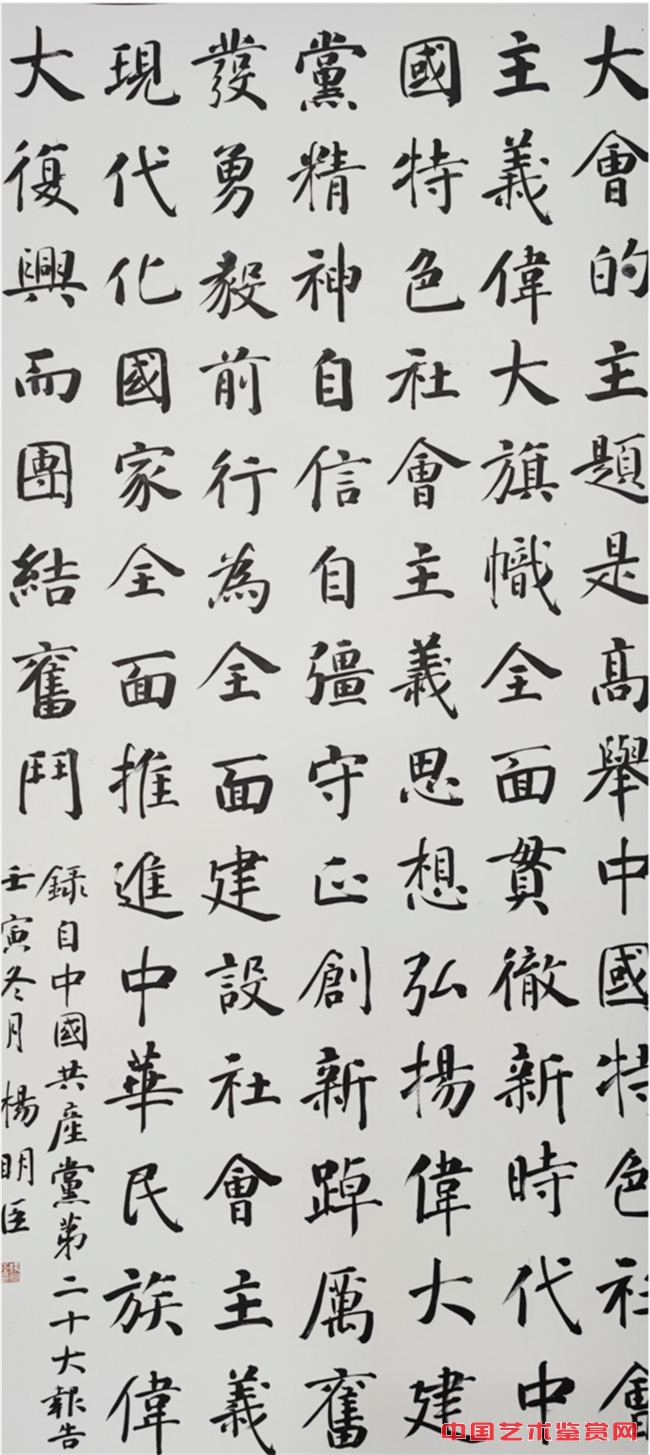 大會的主題是高舉中國特色社會
主義偉大旗幟全面貫徹新時代中
國特色社會主義思想弘揚偉大建
黨精神自信自彊守正創新踔厲奮
發勇毅前行為全面建設社會主義
現代化國家全面推進中華民族偉
大復興而團結奮鬥
録自中國共產黨第二十大報告
壬寅冬月楊明臣
中国艺术鉴赏网